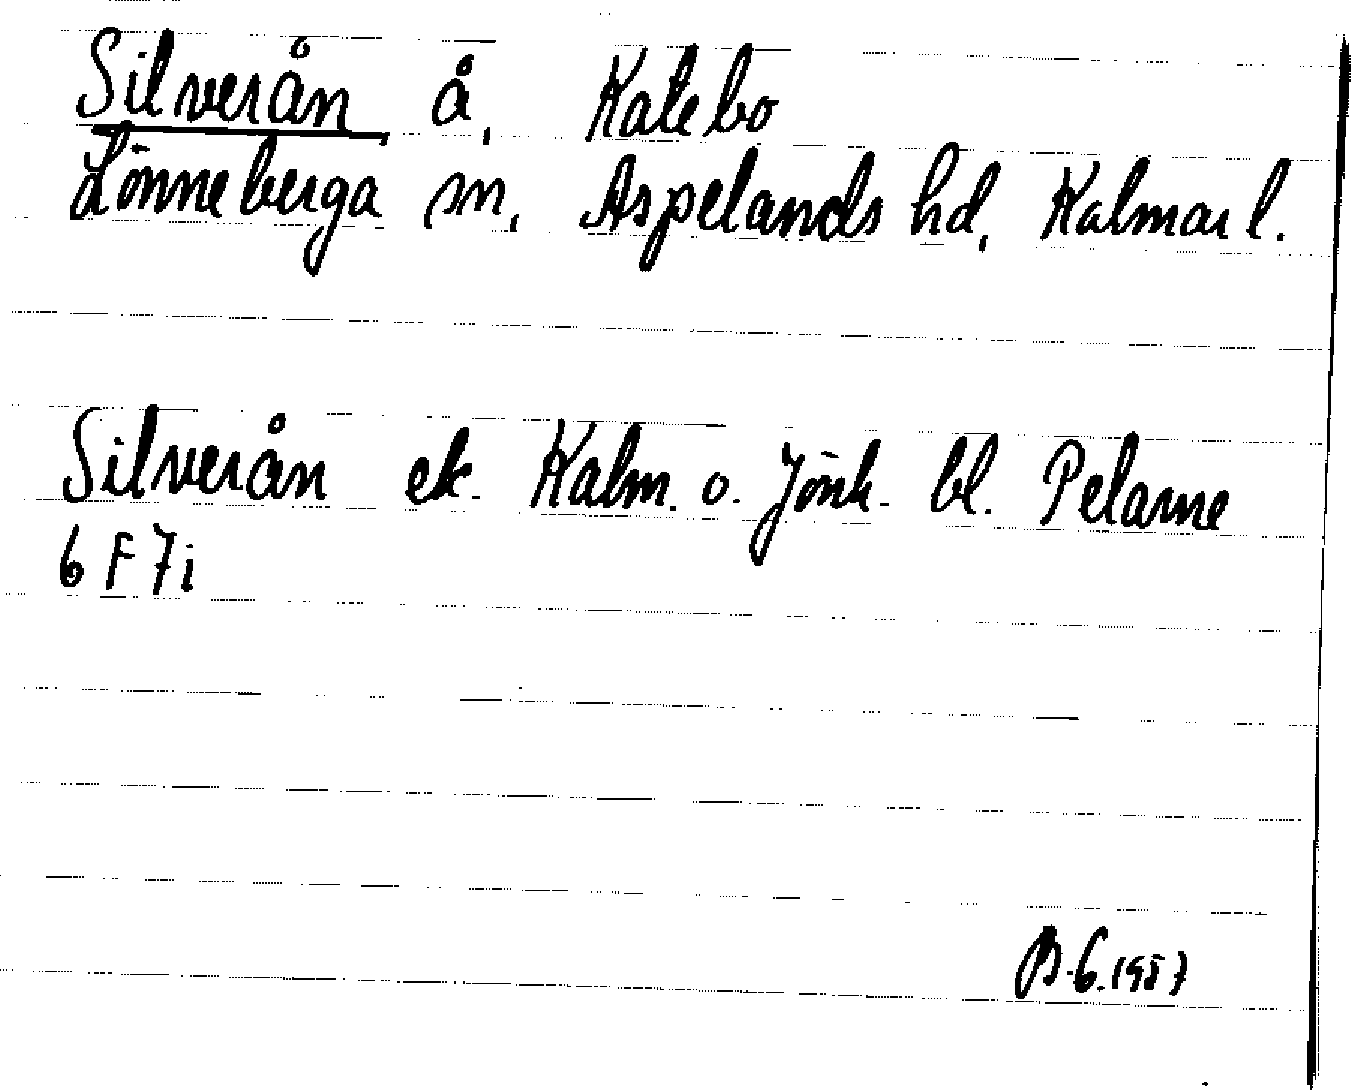 Silverån å, Katebo
Lönneberga sn, Aspelands hd, Kalmar l.
Silverån ek. Kalm. o. Jönk. bl. Pelarne
6 F 7i
B.G. 1957